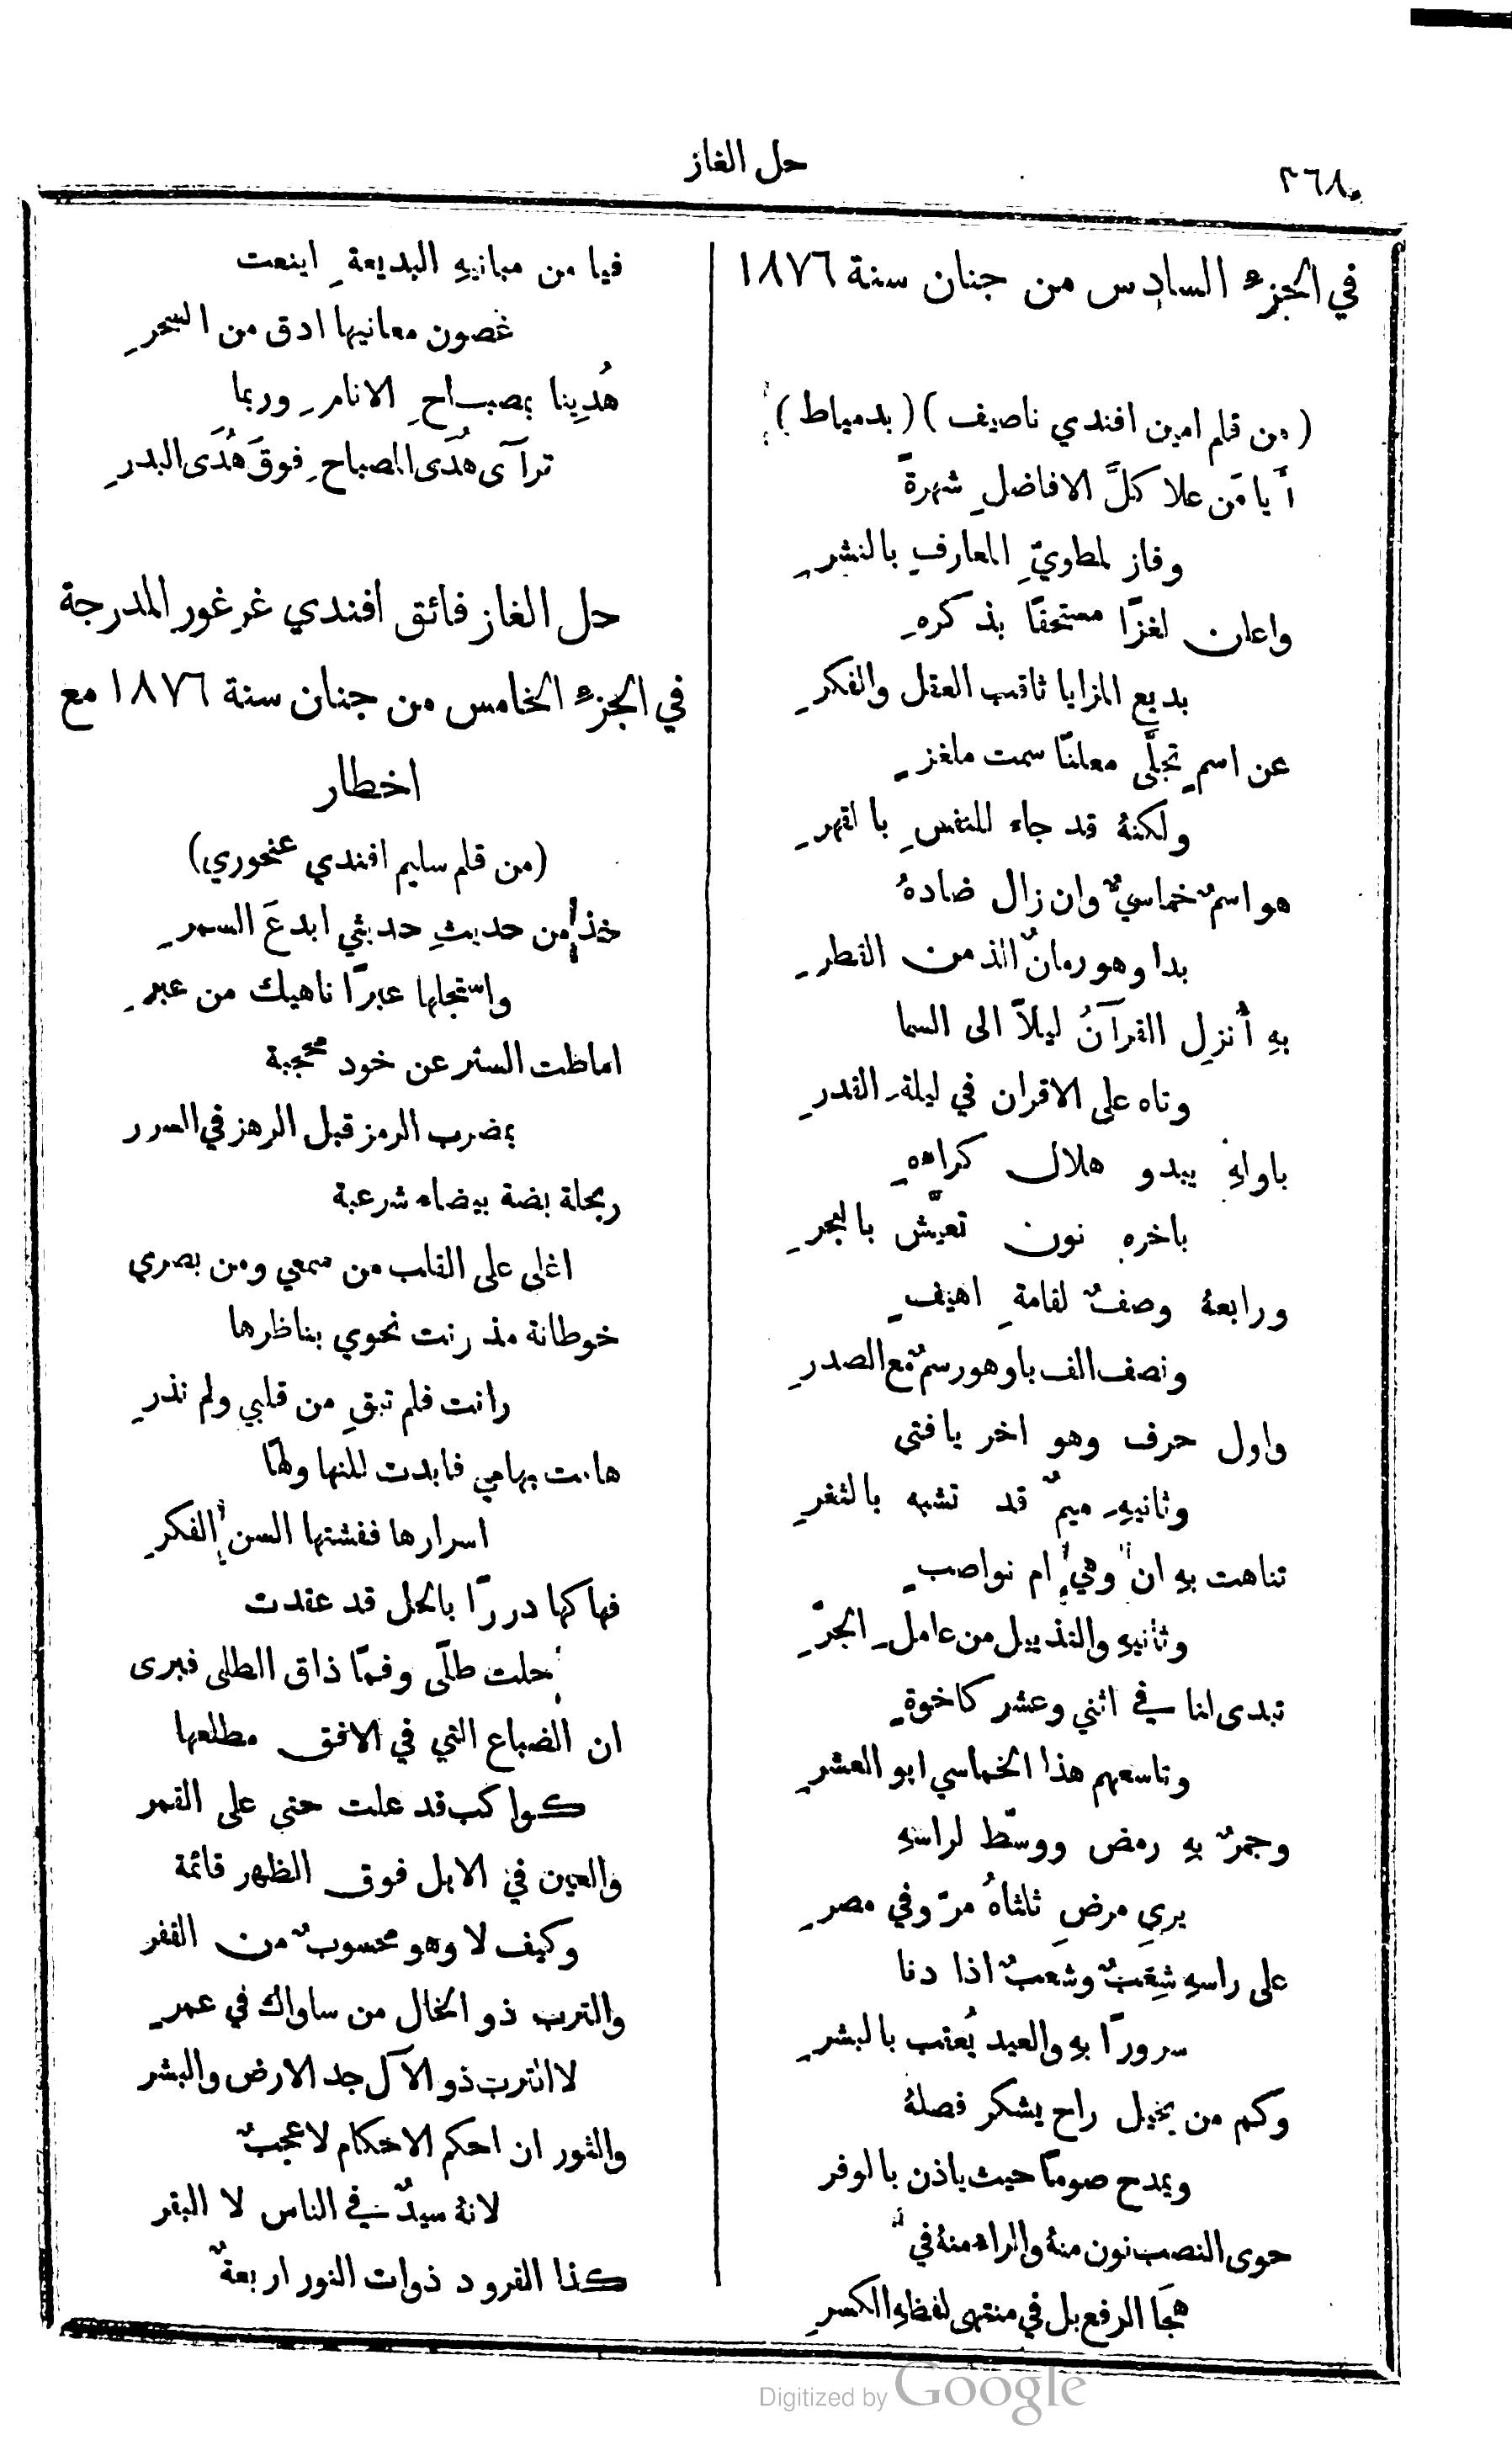 ٣٦٨
حل الغاز
في الجزء السادس من جنان سنة ١٨٧٦
(من قلم امين افندي ناصيف) (بدمياط)
أيا مَن علا كلَّ الافاضلِ شهرةً
وفاز لمطويِّ المعارفِ بالنشرِ
واعلن لغزًا مستحقًا بذكرهِ
بديع المزايا ثاقب العقل والفكرِ
عن اسمٍ تجلَّى معلنًا سمت ملغزٍ
ولكنهُ قد جاء للنفسِ بالقهرِ
هو اسمٌ خماسيٌّ وان زال ضادهُ
بدا وهو رمانٌ الذ من القطرِ
بهِ أُنزل القرآنُ ليلاً الى السما
وتاه على الاقران في ليلةِ القدرِ
باولهِ يبدو هلال كرامةٍ
باخرهِ نون تعيّش بالبحرِ
ورابعهُ وصفٌ لقامةِ اهيفٍ
ونصف الف با وهو رسمٌ مع الصدرِ
واول حرف وهو اخر يا فتى
وثانيهِ ميمٌ قد تشبه بالثغرِ
تناهت بهِ ان وهي ام نواصبٍ
وثانيهِ والتذييل من عاملِ الجرِّ
تبدى لنا في اثني وعشر كاخوةٍ
وتاسعهم هذا الخماسي ابو العشرِ
وجمرٌ بهِ رمض ووسّط لراسهِ
يري مرضِ ثلثاهُ مرّ وفي مصرِ
على راسهِ شِعَبٌ وشعبٌ اذا دنا
سرورًا بهِ والعيد يُعقب بالبشرِ
وكم من بخيل راح يشكر فضلهُ
ويمدح صومًا حيث ياذن بالوفر
حوى النصب نون منهُ والراء منهُ في
هجَا الرفع بل في منتهى لفظهِ الكسرِ
فيا من مبانيهِ البديعةِ اينعت
غصون معانيها ادق من السحرِ
هُدِينا بمصباحِ الانامِ وربما
تراآى هدَى المصباحِ فوقَ هُدَى البدرِ
حل الغاز فائق افندي غرغور المدرجة
في الجزء الخامس من جنان سنة ١٨٧٦ مع
اخطار
(من قلم سليم افندي عنحوري)
خذ من حديثِ حديثي ابدعَ السمرِ
واستجلها عبرًا ناهيك من عبرِ
اماطت الستر عن خود محجبة
بمضرب الرمز قبل الرهز في السرر
ربحلة بضة بيضاء شرعبة
اغلى على القلب من سمعي ومن بصري
خوطانة مذ رنت نحوي بناظرها
رانت فلم تبقِ من قلبي ولم تذرِ
هامت بهامي فابدت للنها ولهًا
اسرارها ففشتها السن الفكرِ
فهاكها دررًا بالحل قد عقدت
حلت طلًى وفمًا ذاق الطلى فبرى
ان الضباع التي في الافق مطلعها
كواكب قد علت حتى على القمر
والعين في الابل فوق الظهر قائمة
وكيف لا وهو محسوبٌ من القفر
والترب ذو الخال من ساواك في عمرٍ
لا الترب ذو الآل جد الارض والبشر
والثور ان احكم الاحكام لا عجبٌ
لانهُ سيدٌ في الناس لا البقر
كذا القرود ذوات النور اربعةٌ
Digitized by Google